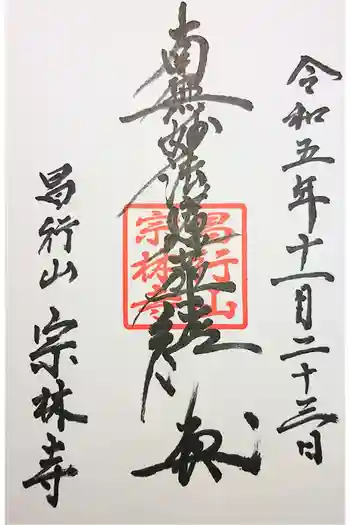 令和五年十一月二十三日
南無妙法蓮華経
昌行山
宗林寺
昌行山
宗林寺